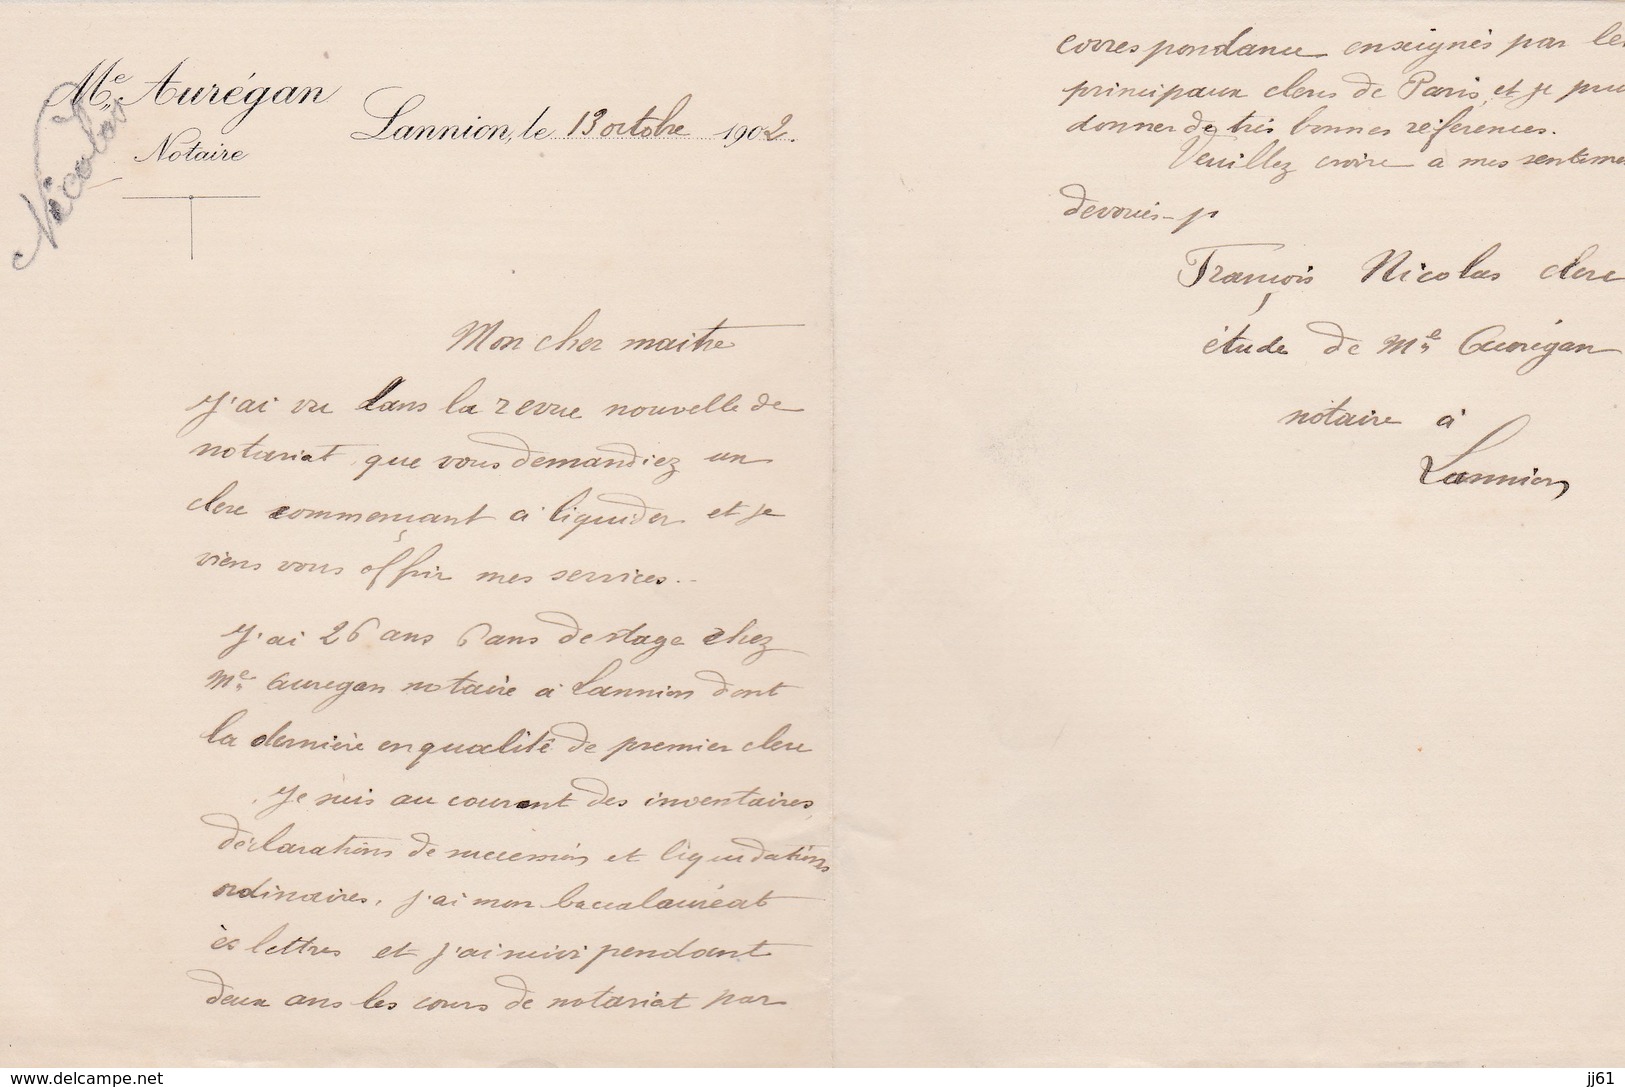 Me Aurégan
Notaire
Nicolas
Lannion, le 13 octobre 1902.
Mon cher maitre
J'ai vu dans la revue nouvelle de
notariat que vous demandiez un
clerc commençant à liquider et je
viens vous offrir mes services..
J'ai 26 ans 6 ans de stage chez
Me Auregan notaire à Lannion dont
la dernière en qualité de premier clerc
Je suis au courant des inventaires,
déclarations de succession et liquidations
ordinaires, j'ai mon baccalauréat
ès lettres et j'ai suivi pendant
deux ans les cours de notariat par
correspondance enseignés par les
principaux clercs de Paris, et je puis
donner de très bonnes réferences.
Veuillez croire a mes sentimen
devoués
François Nicolas clerc
étude de Me Aurégan
notaire à
Lannion
www.delcampe.net
jj61